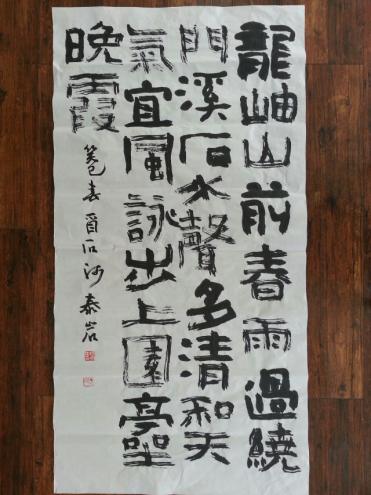 龍岫山前春雨過繞
門溪石水聲多清和天
氣宜風詠步上園亭望
晚霞
石沙泰岩